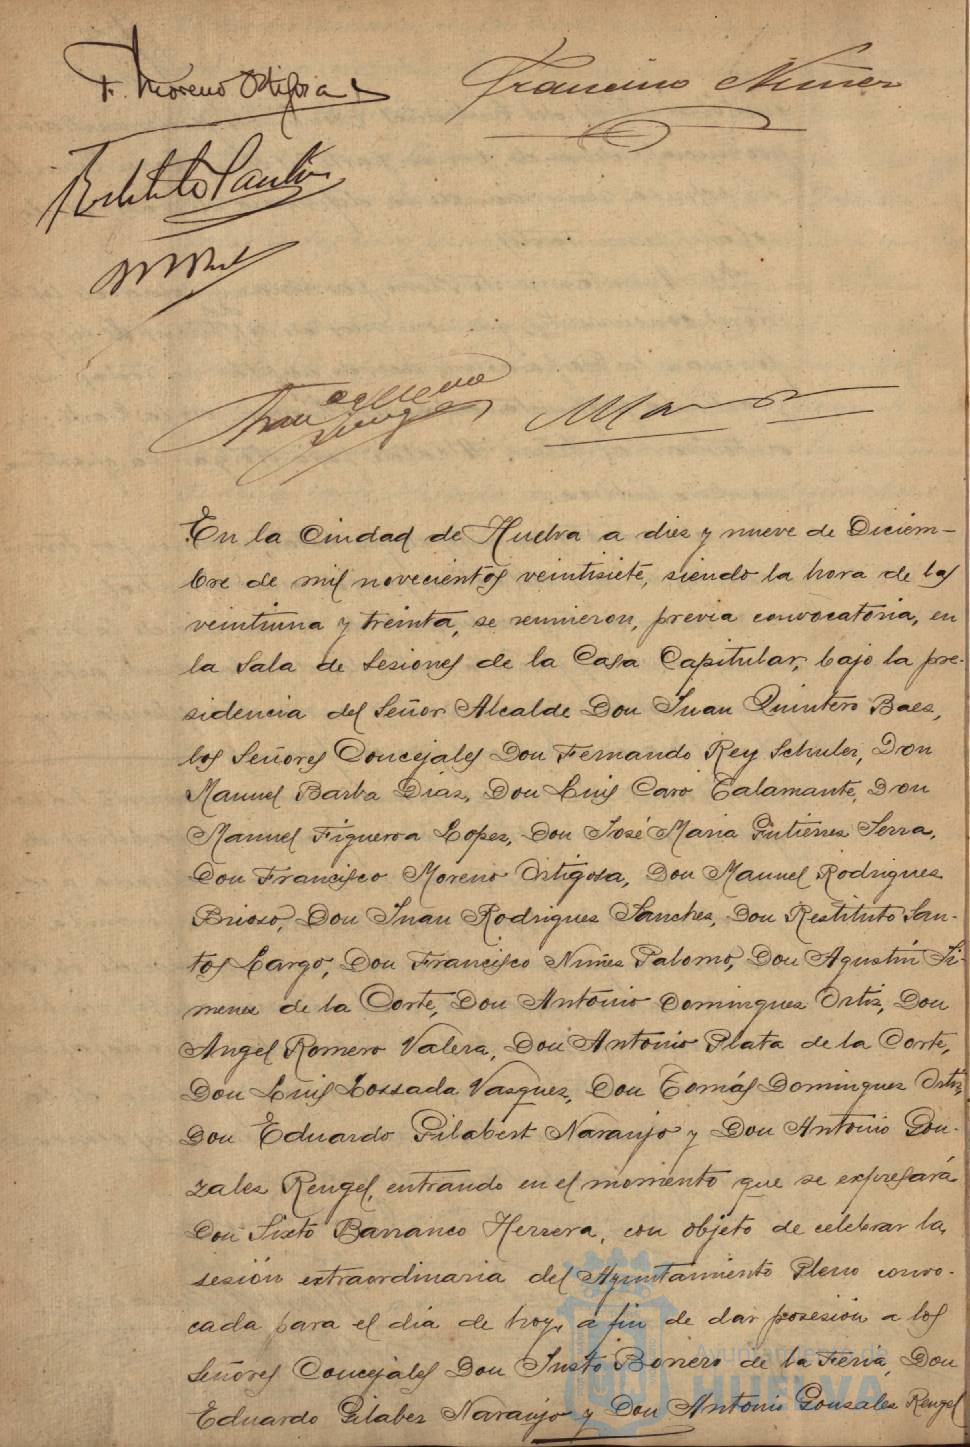 F. Moreno Ortigosa
Francisco Nuñez
Restituto Santos
En la Ciudad de Huelva a diez y nueve de Diciem-
bre de mil novecientos veintisiete, siendo la hora de las
veintiuna y treinta, se reunieron, previa convocatoria, en
la Sala de Sesiones de la Casa Capitular, bajo la pre-
sidencia del Señor Alcalde Don Juan Quintero Baez,
los Señores Concejales Don Fernando Rey Schuler, Don
Manuel Barba Diaz, Don Luis Caro Talamante, Don
Manuel Figueroa Lopez, Don José Maria Gutierrez Serra,
Don Francisco Moreno Ortigosa, Don Manuel Rodriguez
Brioso, Don Juan Rodriguez Sanchez, Don Restituto San-
tos Largo, Don Francisco Nuñez Palomo, Don Agustin Ji-
menez de la Corte, Don Antonio Dominguez Ortiz, Don
Angel Romero Valera, Don Antonio Plata de la Corte,
Don Luis Lossada Vasquez, Don Tomás Dominguez Ortiz,
Don Eduardo Gilabert Naranjo y Don Antonio Gon-
zalez Rengel, entrando en el momento que se expresará
Don Sixto Barranco Herrera, con objeto de celebrar la
sesión extraordinaria del Ayuntamiento Pleno convo-
cada para el dia de hoy, a fin de dar posesión a los
Señores Concejales Don Justo Borrero de la Feria, Don
Ayuntamiento de
HUELVA
Eduardo Gilaber Naranjo y Don Antonio Gonzalez Rengel